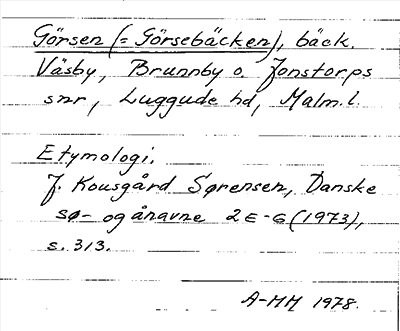 Görsen (= Görsebäcken), bäck.
Väsby, Brunnby o. Jonstorps
snr, Luggude hd, Malm. l.
Etymologi.
J. Kousgård Sørensen, Danske
sø- og ånavne 2 E-G (1973),
s. 313.
A-MH 1978.